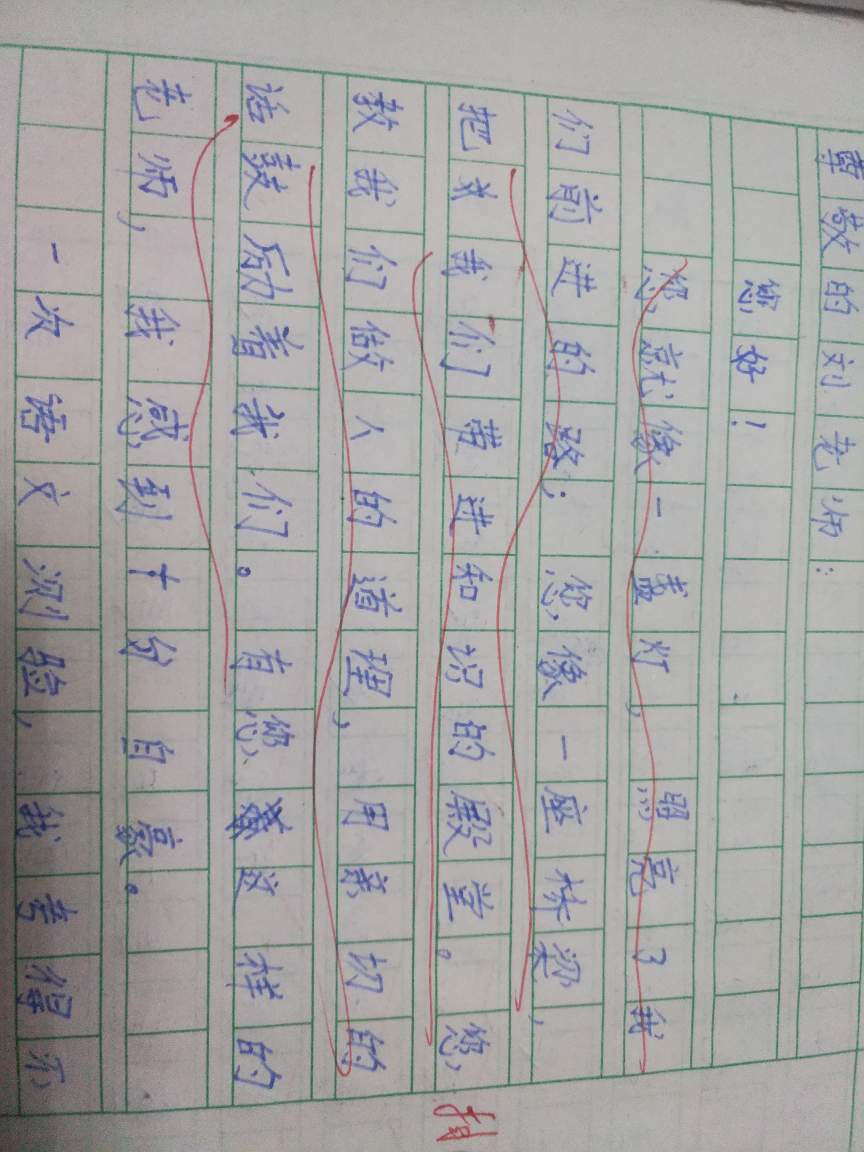 尊敬的刘老师：
您好！
您就像一盏灯，照亮了我
们前进的路；您像一座桥梁，
把我们带进知识的殿堂。您
教我们做人的道理，用亲切的
话鼓励着我们。有您这样的
老师，我感到十分自豪。
一次语文测验，我考得不